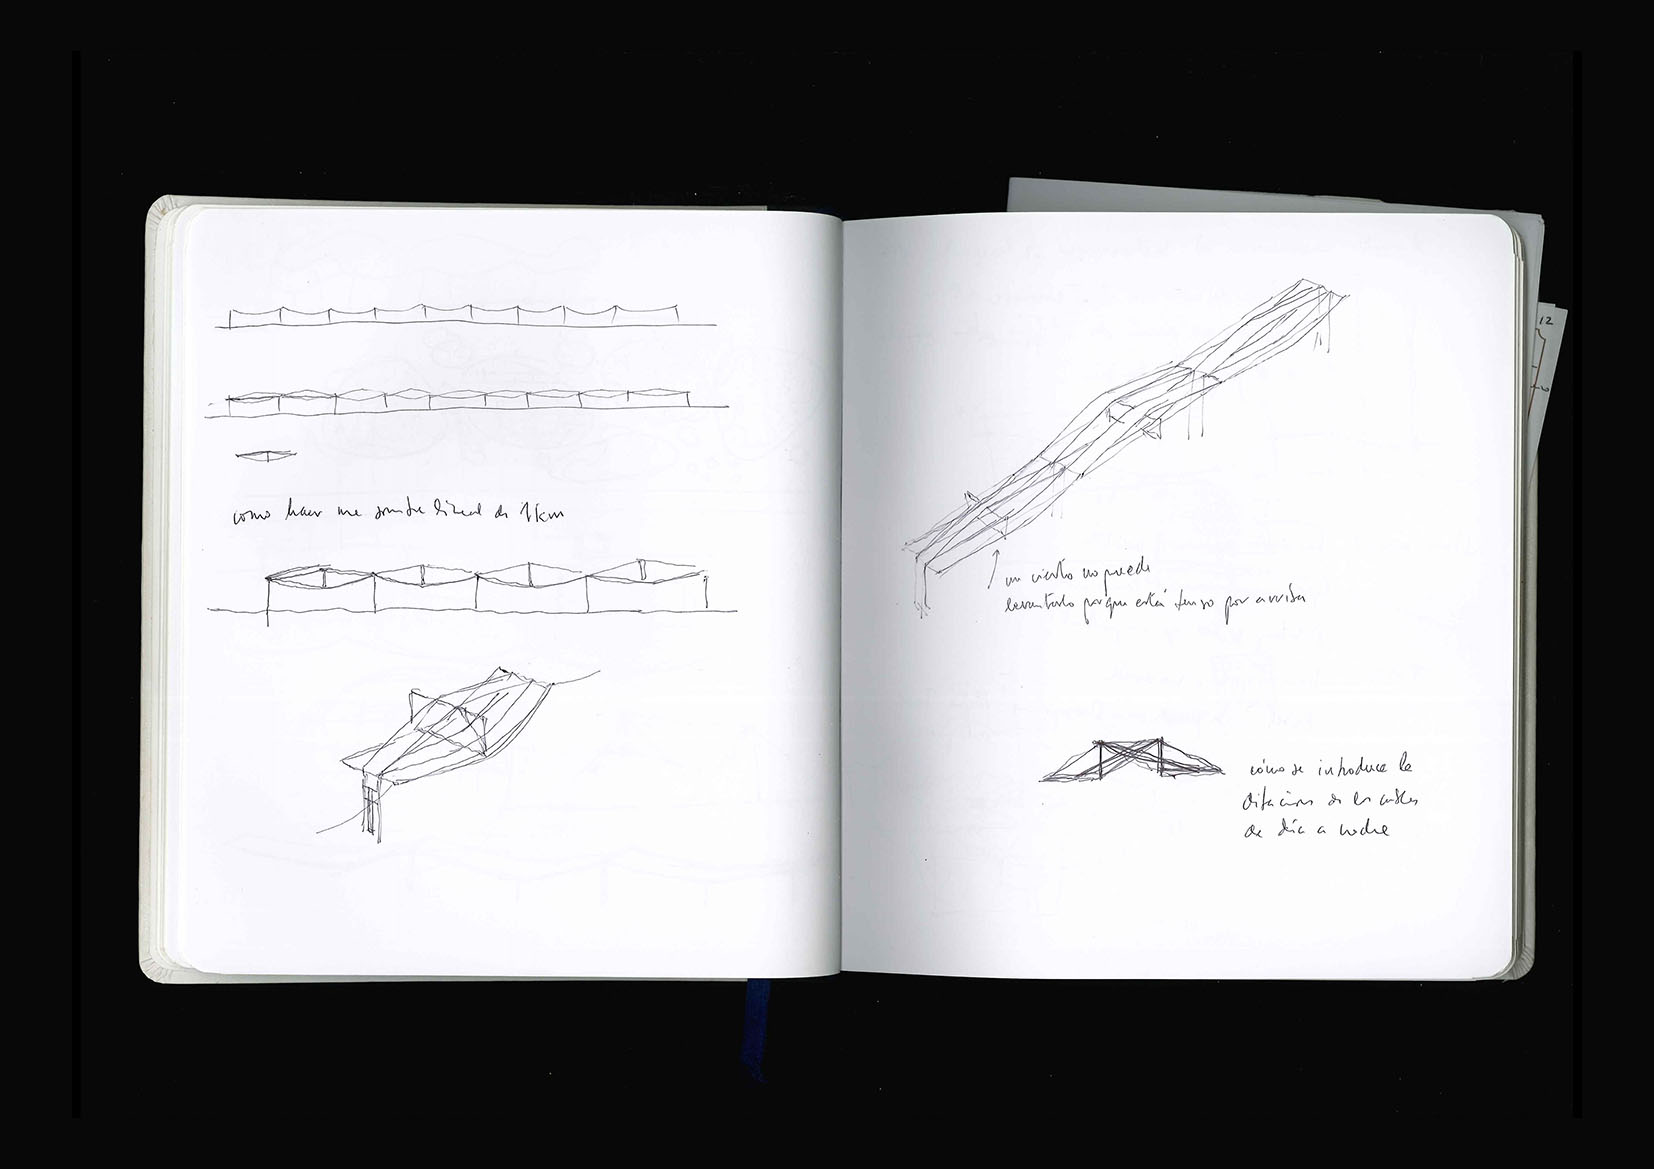 como hacer una sombra lineal de 1km
un viento no puede
levantarlo porque está tenso por arriba
cómo se introduce la
dilatación de los cables
de día a noche
12